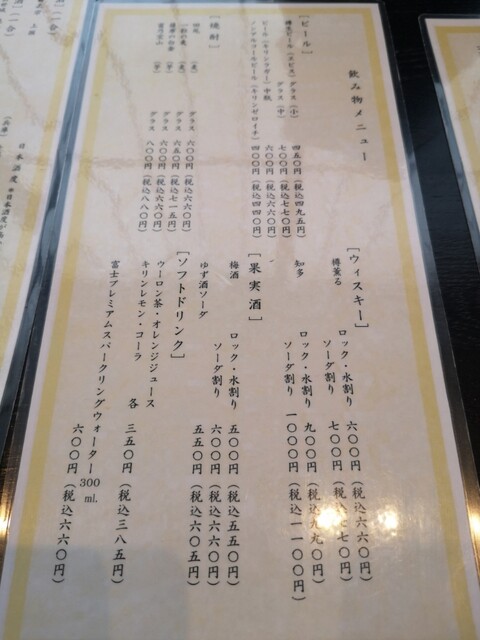 飲み物メニュー
[ビール]
グラス(小) 四五〇円(税込四九五円)
グラス(中) 七〇〇円(税込七七〇円)
ビール(キリンラガー)中瓶 六〇〇円(税込六六〇円)
ノンアルコールビール(キリンゼロイチ) 四〇〇円(税込四四〇円)
[焼酎]
(麦) グラス 六〇〇円(税込六六〇円)
一粒の麦(麦) グラス 六〇〇円(税込六六〇円)
(芋) グラス 六五〇円(税込七一五円)
富乃宝山(芋) グラス 八〇〇円(税込八八〇円)
[ウィスキー]
樽薫る ロック・水割り 六〇〇円(税込六六〇円)
ソーダ割り 七〇〇円(税込七七〇円)
知多 ロック・水割り 九〇〇円(税込九九〇円)
ソーダ割り 一〇〇〇円(税込一一〇〇円)
[果実酒]
梅酒 ロック・水割り 五〇〇円(税込五五〇円)
ソーダ割り 六〇〇円(税込六六〇円)
ゆず酒ソーダ 五五〇円(税込六〇五円)
[ソフトドリンク]
ウーロン茶・オレンジジュース
キリンレモン・コーラ 各 三五〇円(税込三八五円)
富士プレミアムスパークリングウォーター 300ml. 六〇〇円(税込六六〇円)
日本酒度
(兵庫)